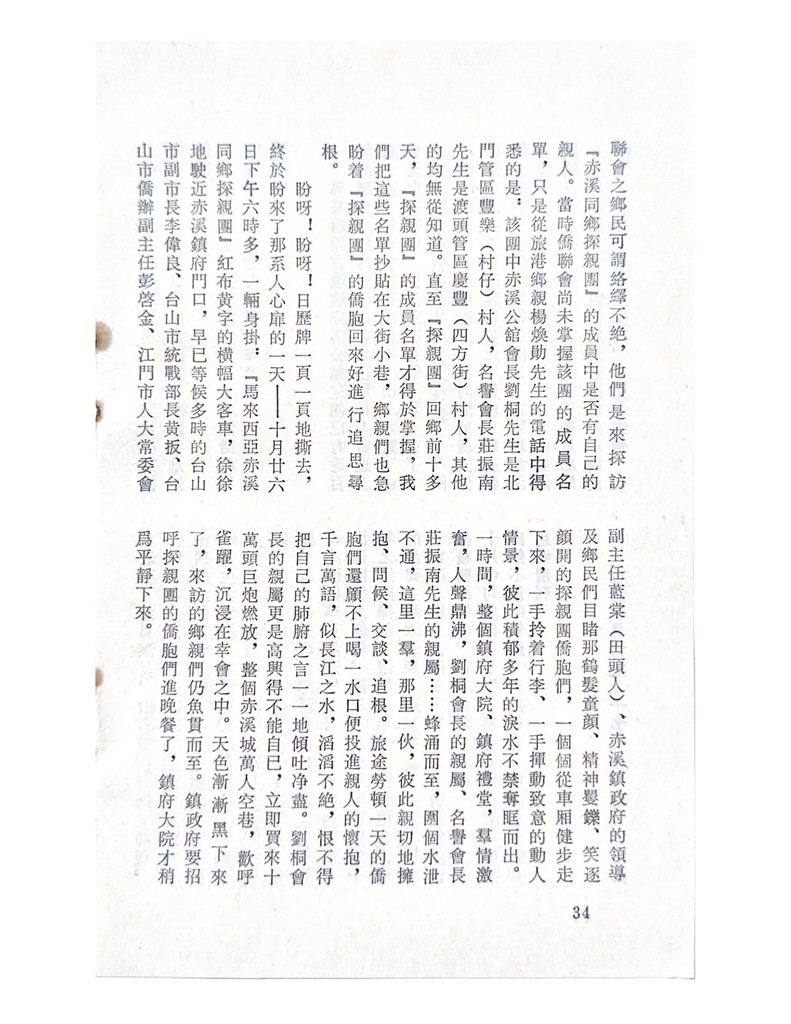 聯會之鄉民可謂絡繹不絶，他們是來探訪
『赤溪同鄉探親團』的成員中是否有自己的
親人。當時僑聯會尚未掌握該團的成員名
單，只是從旅港鄉親楊煥勛先生的電話中得
悉的是：該團中赤溪公舘會長劉桐先生是北
門管區豐樂（村仔）村人，名譽會長莊振南
先生是渡頭管區慶豐（四方街）村人，其他
的均無從知道。直至『探親團』回鄉前十多
天，『探親團』的成員名單才得於掌握，我
們把這些名單抄貼在大街小巷，鄉親們也急
盼着『探親團』的僑胞回來好進行追思尋
根。
盼呀！盼呀！日歷牌一頁一頁地撕去，
終於盼來了那系人心扉的一天——十月廿六
日下午六時多，一輛身掛：『馬來西亞赤溪
同鄉探親團』紅布黃字的横幅大客車，徐徐
地駛近赤溪鎮府門口，早已等候多時的台山
市副市長李偉良、台山市統戰部長黃扳、台
山市僑辦副主任彭啓金、江門市人大常委會
副主任藍棠（田頭人）、赤溪鎮政府的領導
及鄉民們目睹那鶴髮童顔、精神矍鑠、笑逐
顔開的探親團僑胞們，一個個從車厢健步走
下來，一手拎着行李、一手揮動致意的動人
情景，彼此積郁多年的淚水不禁奪眶而出。
一時間，整個鎮府大院、鎮府禮堂，羣情激
奮，人聲鼎沸，劉桐會長的親属、名譽會長
莊振南先生的親属……蜂涌而至，圍個水泄
不通，這里一羣，那里一伙，彼此親切地擁
抱、問候、交談、追根。旅途勞頓一天的僑
胞們還顧不上喝一水口便投進親人的懷抱，
千言萬語，似長江之水，滔滔不絶，恨不得
把自己的肺腑之言一一地傾吐净盡。劉桐會
長的親属更是高興得不能自已，立即買來十
萬頭巨炮燃放，整個赤溪城萬人空巷，歡呼
雀躍，沉浸在幸會之中。天色漸漸黑下來
了，來訪的鄉親們仍魚貫而至。鎮政府要招
呼探親團的僑胞們進晚餐了，鎮府大院才稍
爲平靜下來。
34